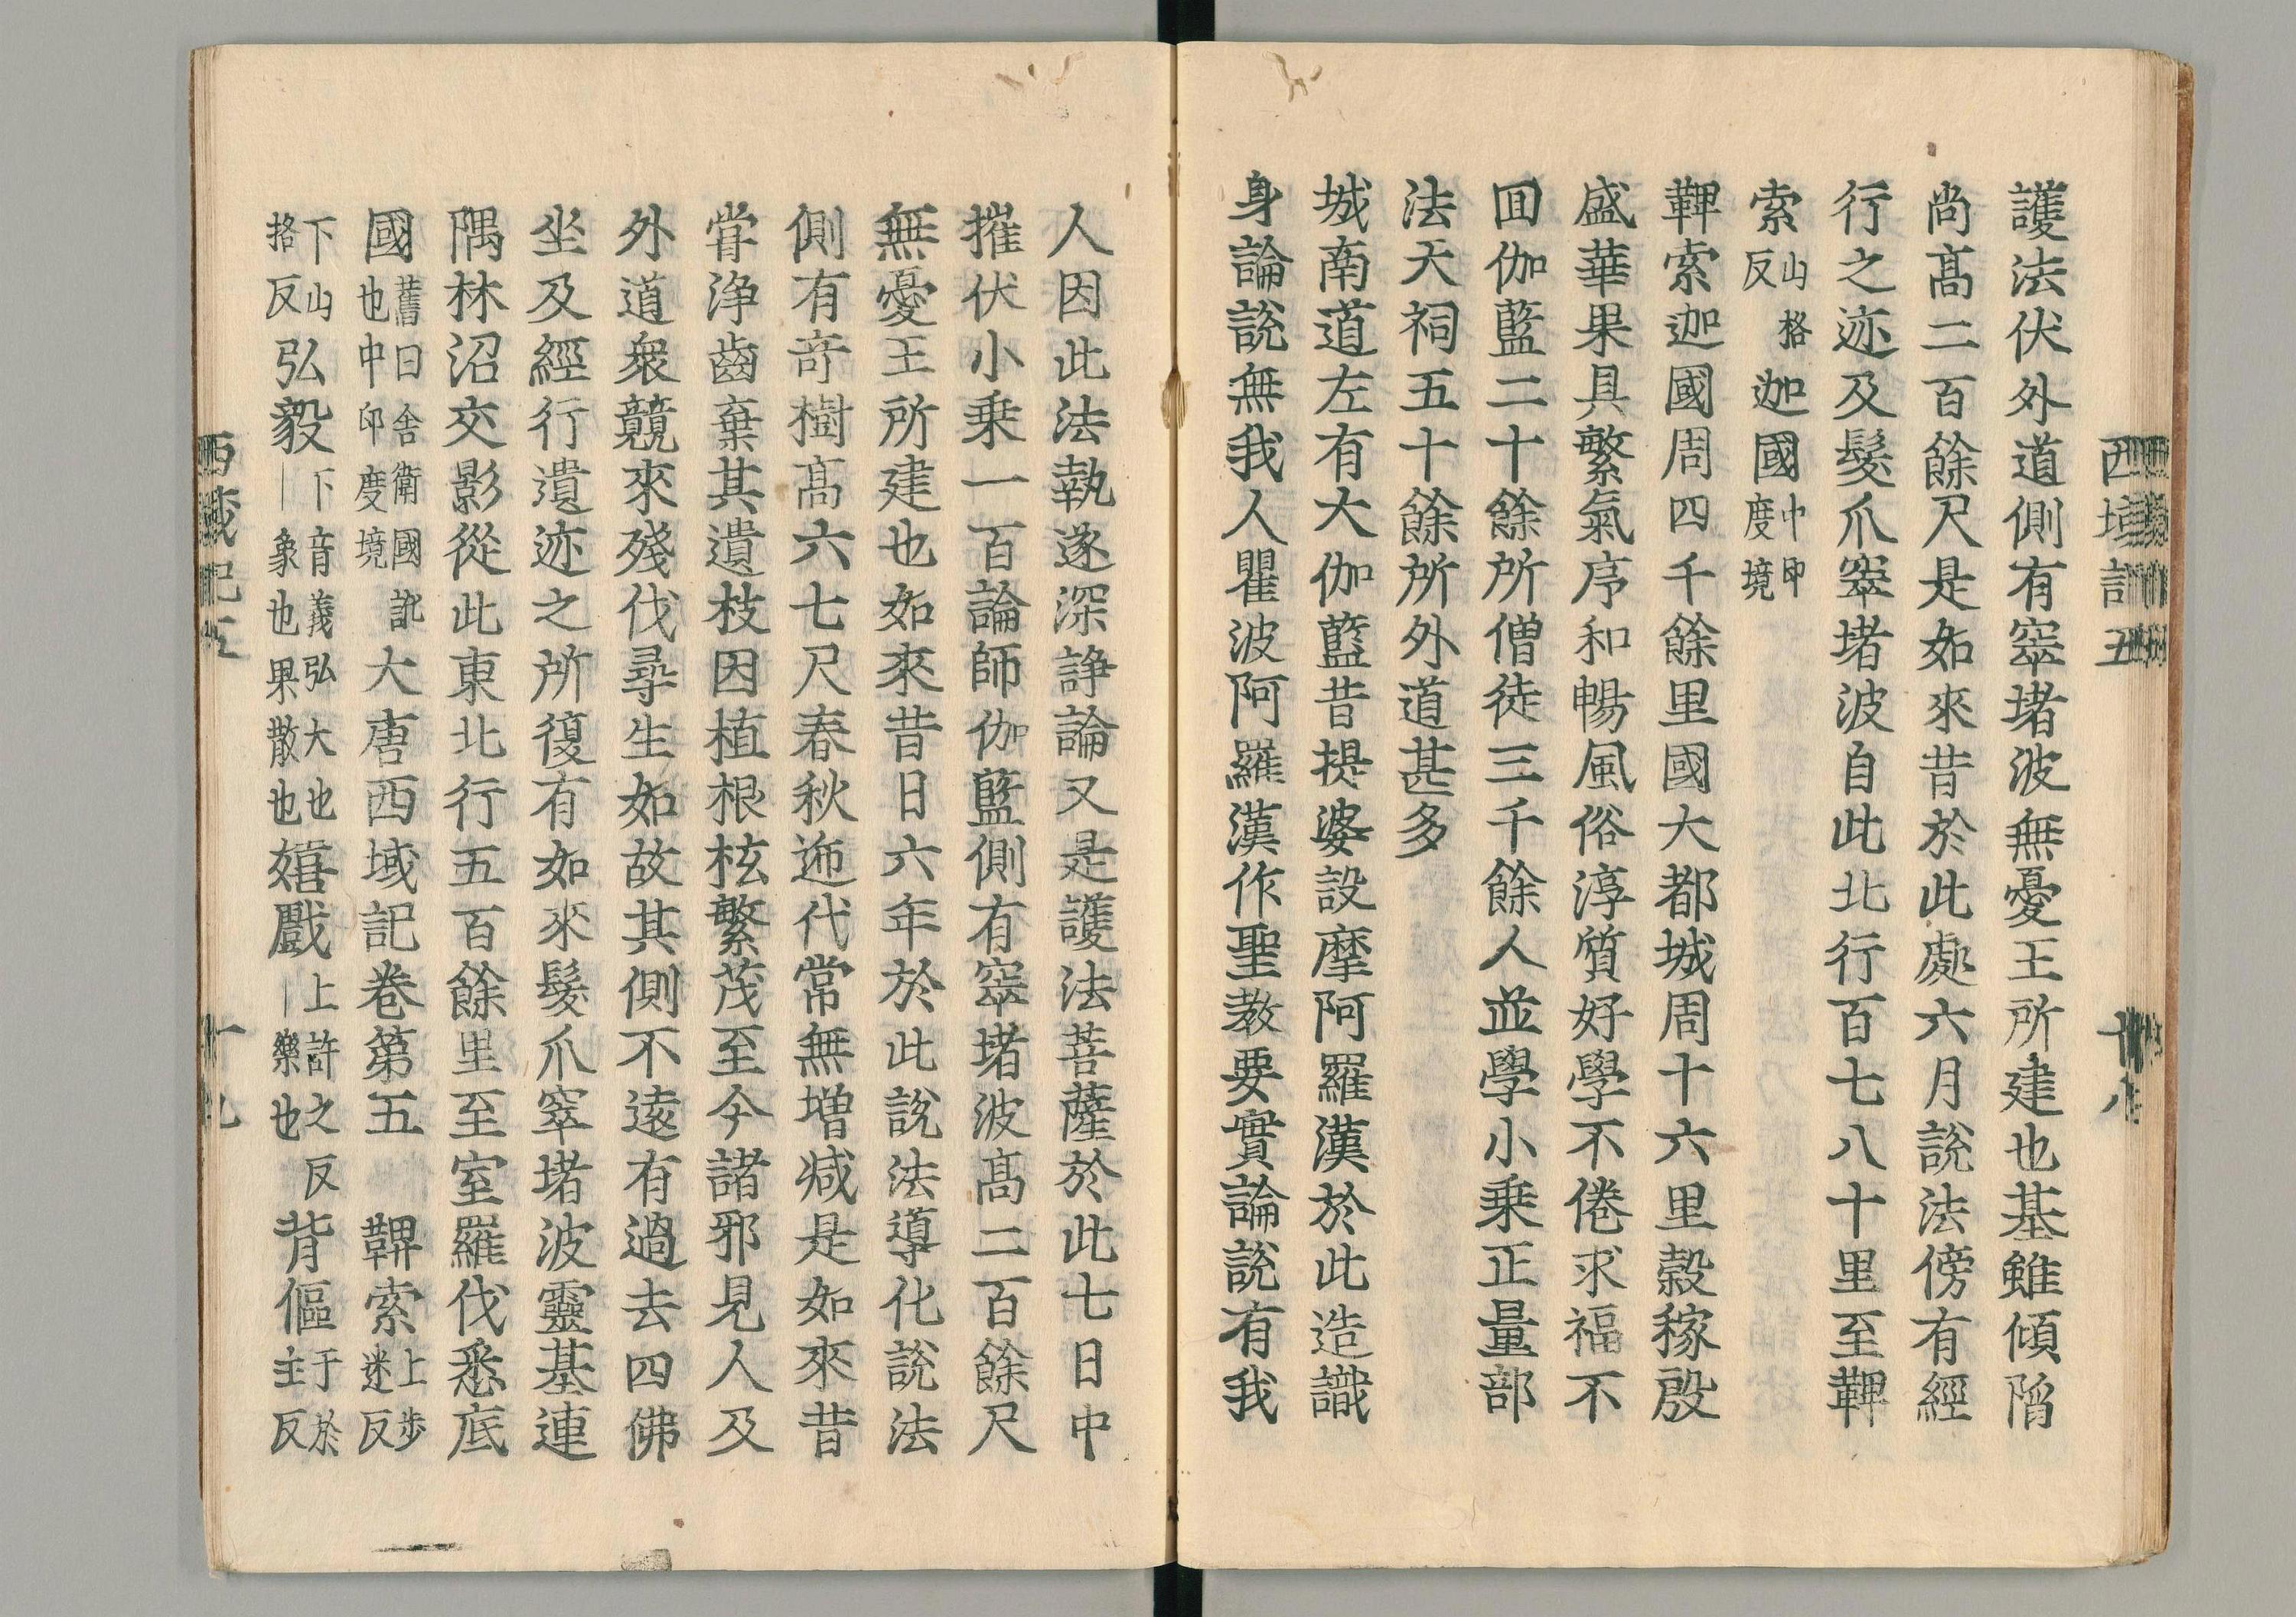 護法伏外道側有窣堵波無憂王所建也基雖傾陷
尚髙二百餘尺是如來昔於此處六月說法傍有經
行之迹及髮爪窣堵波自此北行百七八十里至鞞
索山格反迦國中印度境
鞞索迦國周四千餘里國大都城周十六里穀稼殷
盛華果具繁氣序和暢風俗淳質好學不倦求福不
囬伽藍二十餘所僧徒三千餘人並學小乗正量部
法天祠五十餘所外道甚多
城南道左有大伽藍昔提婆設摩阿羅漢於此造識
身論説無我人瞿波阿羅漢作聖教要實論説有我
人因此法執遂深諍論又是護法菩薩於此七日中
摧伏小乗一百論師伽藍側有窣堵波髙二百餘尺
無憂王所建也如來昔日六年於此說法導化說法
側有竒樹髙六七尺春秋逓代常無増减是如來昔
甞浄齒棄其遺枝因植根柭繁茂至今諸邪見人及
外道衆競來殘伐尋生如故其側不逺有過去四佛
坐及經行遺迹之所復有如來髮爪窣堵波靈基連
隅林沼交影從此東北行五百餘里至室羅伐悉底
國舊曰舎衛國訛也中印度境大唐西域記卷第五　鞞索上歩迷反
下山格反弘毅下音義弘大也｜象也果散也嬉戲上許之反｜樂也背傴於于主反
西域記五
十九